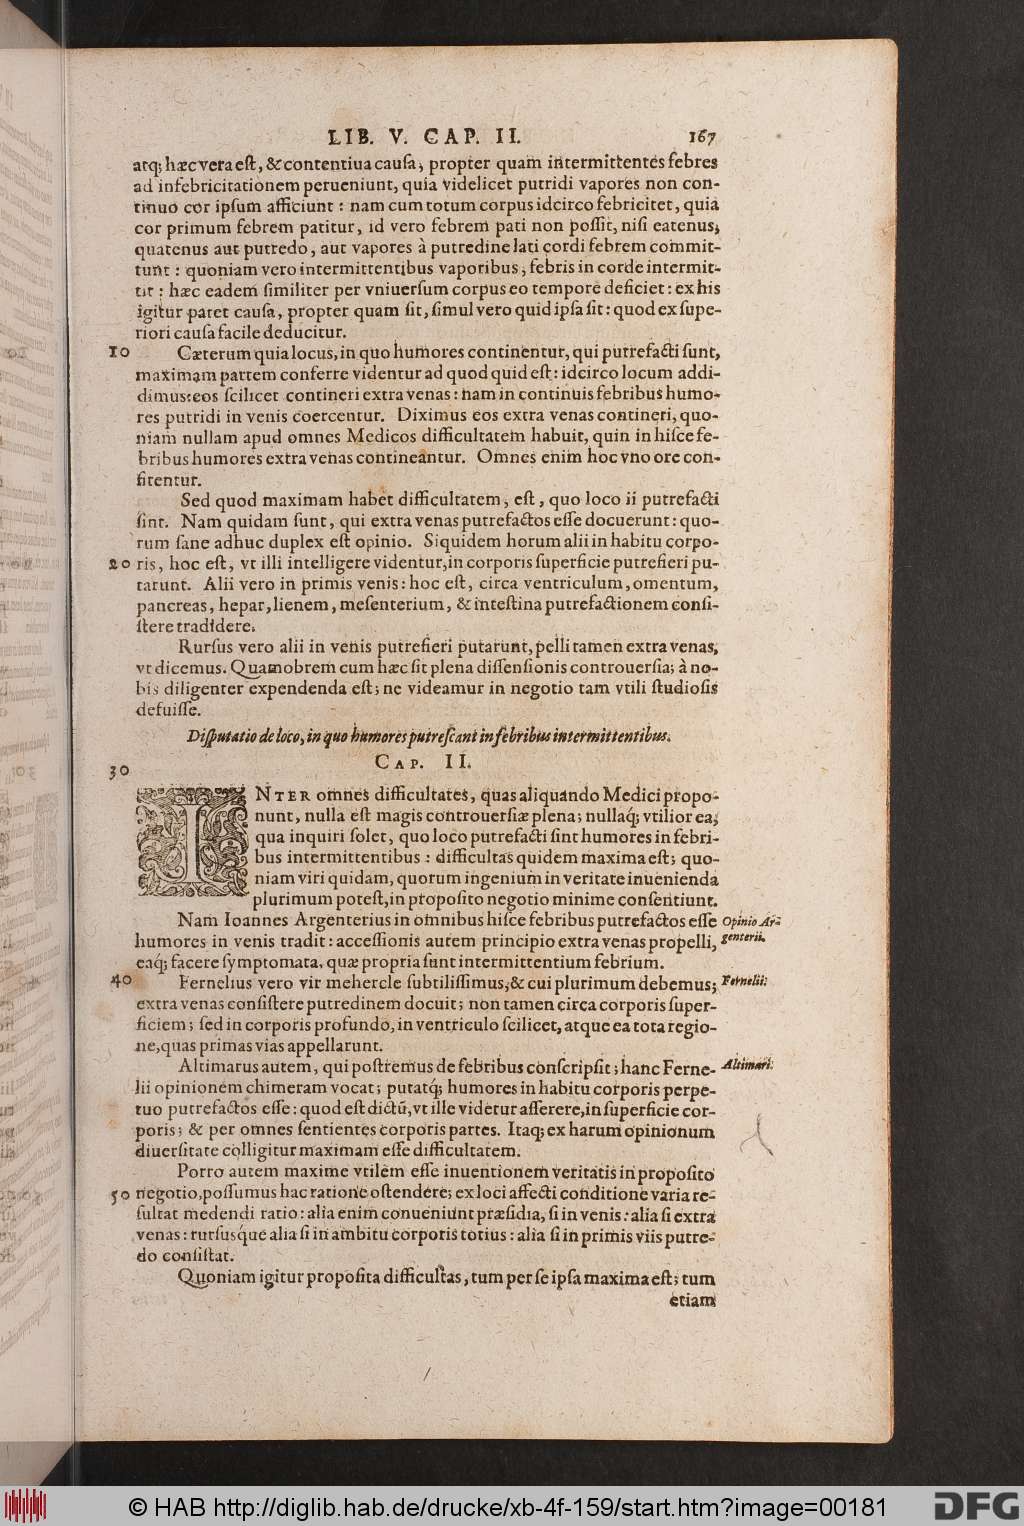 LIB. V. CAP. II. 167
atq; hæc vera eſt, & contentiua cauſa, propter quam intermittentes febres
ad infebricitationem perueniunt, quia videlicet putridi vapores non con-
tinuo cor ipſum afficiunt : nam cum totum corpus idcirco febricitet, quia
cor primum febrem patitur, id vero febrem pati non poſſit, niſi eatenus,
quatenus aut putredo, aut vapores à putredine lati cordi febrem commit-
tunt : quoniam vero intermittentibus vaporibus, febris in corde intermit-
tit : hæc eadem ſimiliter per vniuerſum corpus eo tempore deficiet : ex his
igitur patet cauſa, propter quam ſit, ſimul vero quid ipſa ſit : quod ex ſupe-
riori cauſa facile deducitur.
10 Cæterum quia locus, in quo humores continentur, qui putrefacti ſunt,
maximam partem conferre videntur ad quod quid eſt : idcirco locum addi-
dimus: eos ſcilicet contineri extra venas : nam in continuis febribus humo-
res putridi in venis coercentur. Diximus eos extra venas contineri, quo-
niam nullam apud omnes Medicos difficultatem habuit, quin in hiſce fe-
bribus humores extra venas contineantur. Omnes enim hoc vno ore con-
fitentur.
Sed quod maximam habet difficultatem, eſt, quo loco ii putrefacti
ſint. Nam quidam ſunt, qui extra venas putrefactos eſſe docuerunt : quo-
rum ſane adhuc duplex eſt opinio. Siquidem horum alii in habitu corpo-
20 ris, hoc eſt, vt illi intelligere videntur, in corporis ſuperficie putrefieri pu-
tarunt. Alii vero in primis venis : hoc eſt, circa ventriculum, omentum,
pancreas, hepar, lienem, meſenterium, & inteſtina putrefactionem conſi-
ſtere tradidere.
Rurſus vero alii in venis putrefieri putarunt, pelli tamen extra venas,
vt dicemus. Quamobrem cum hæc ſit plena diſſenſionis controuerſia, à no-
bis diligenter expendenda eſt; ne videamur in negotio tam vtili ſtudioſis
defuiſſe.
Diſputatio de loco, in quo humores putreſcant in febribus intermittentibus.
30 CAP. II.
INTER omnes difficultates, quas aliquando Medici propo-
nunt, nulla eſt magis controuerſiæ plena; nullaq; vtilior ea,
qua inquiri ſolet, quo loco putrefacti ſint humores in febri-
bus intermittentibus : difficultas quidem maxima eſt; quo-
niam viri quidam, quorum ingenium in veritate inuenienda
plurimum poteſt, in propoſito negotio minime conſentiunt.
Nam Ioannes Argenterius in omnibus hiſce febribus putrefactos eſſe Opinio Ar-
humores in venis tradit : acceſſionis autem principio extra venas propelli, genterii.
eaq; facere ſymptomata, quæ propria ſunt intermittentium febrium.
40 Fernelius vero vir mehercle ſubtiliſſimus, & cui plurimum debemus; Fernelii:
extra venas conſiſtere putredinem docuit; non tamen circa corporis ſuper-
ficiem; ſed in corporis profundo, in ventriculo ſcilicet, atque ea tota regio-
ne, quas primas vias appellarunt.
Altimarus autem, qui poſtremus de febribus conſcripſit; hanc Ferne- Altimari:
lii opinionem chimeram vocat; putatq; humores in habitu corporis perpe-
tuo putrefactos eſſe : quod eſt dictū, vt ille videtur aſſerere, in ſuperficie cor-
poris; & per omnes ſentientes corporis partes. Itaq; ex harum opinionum
diuerſitate colligitur maximam eſſe difficultatem.
Porro autem maxime vtilem eſſe inuentionem veritatis in propoſito
50 negotio, poſſumus hac ratione oſtendere; ex loci affecti conditione varia re-
ſultat medendi ratio : alia enim conueniunt præſidia, ſi in venis : alia ſi extra
venas : rurſusq́ue alia ſi in ambitu corporis totius : alia ſi in primis viis putre-
do conſiſtat.
Quoniam igitur propoſita difficultas, tum per ſe ipſa maxima eſt; tum
etiam
© HAB http://diglib.hab.de/drucke/xb-4f-159/start.htm?image=00181
DFG